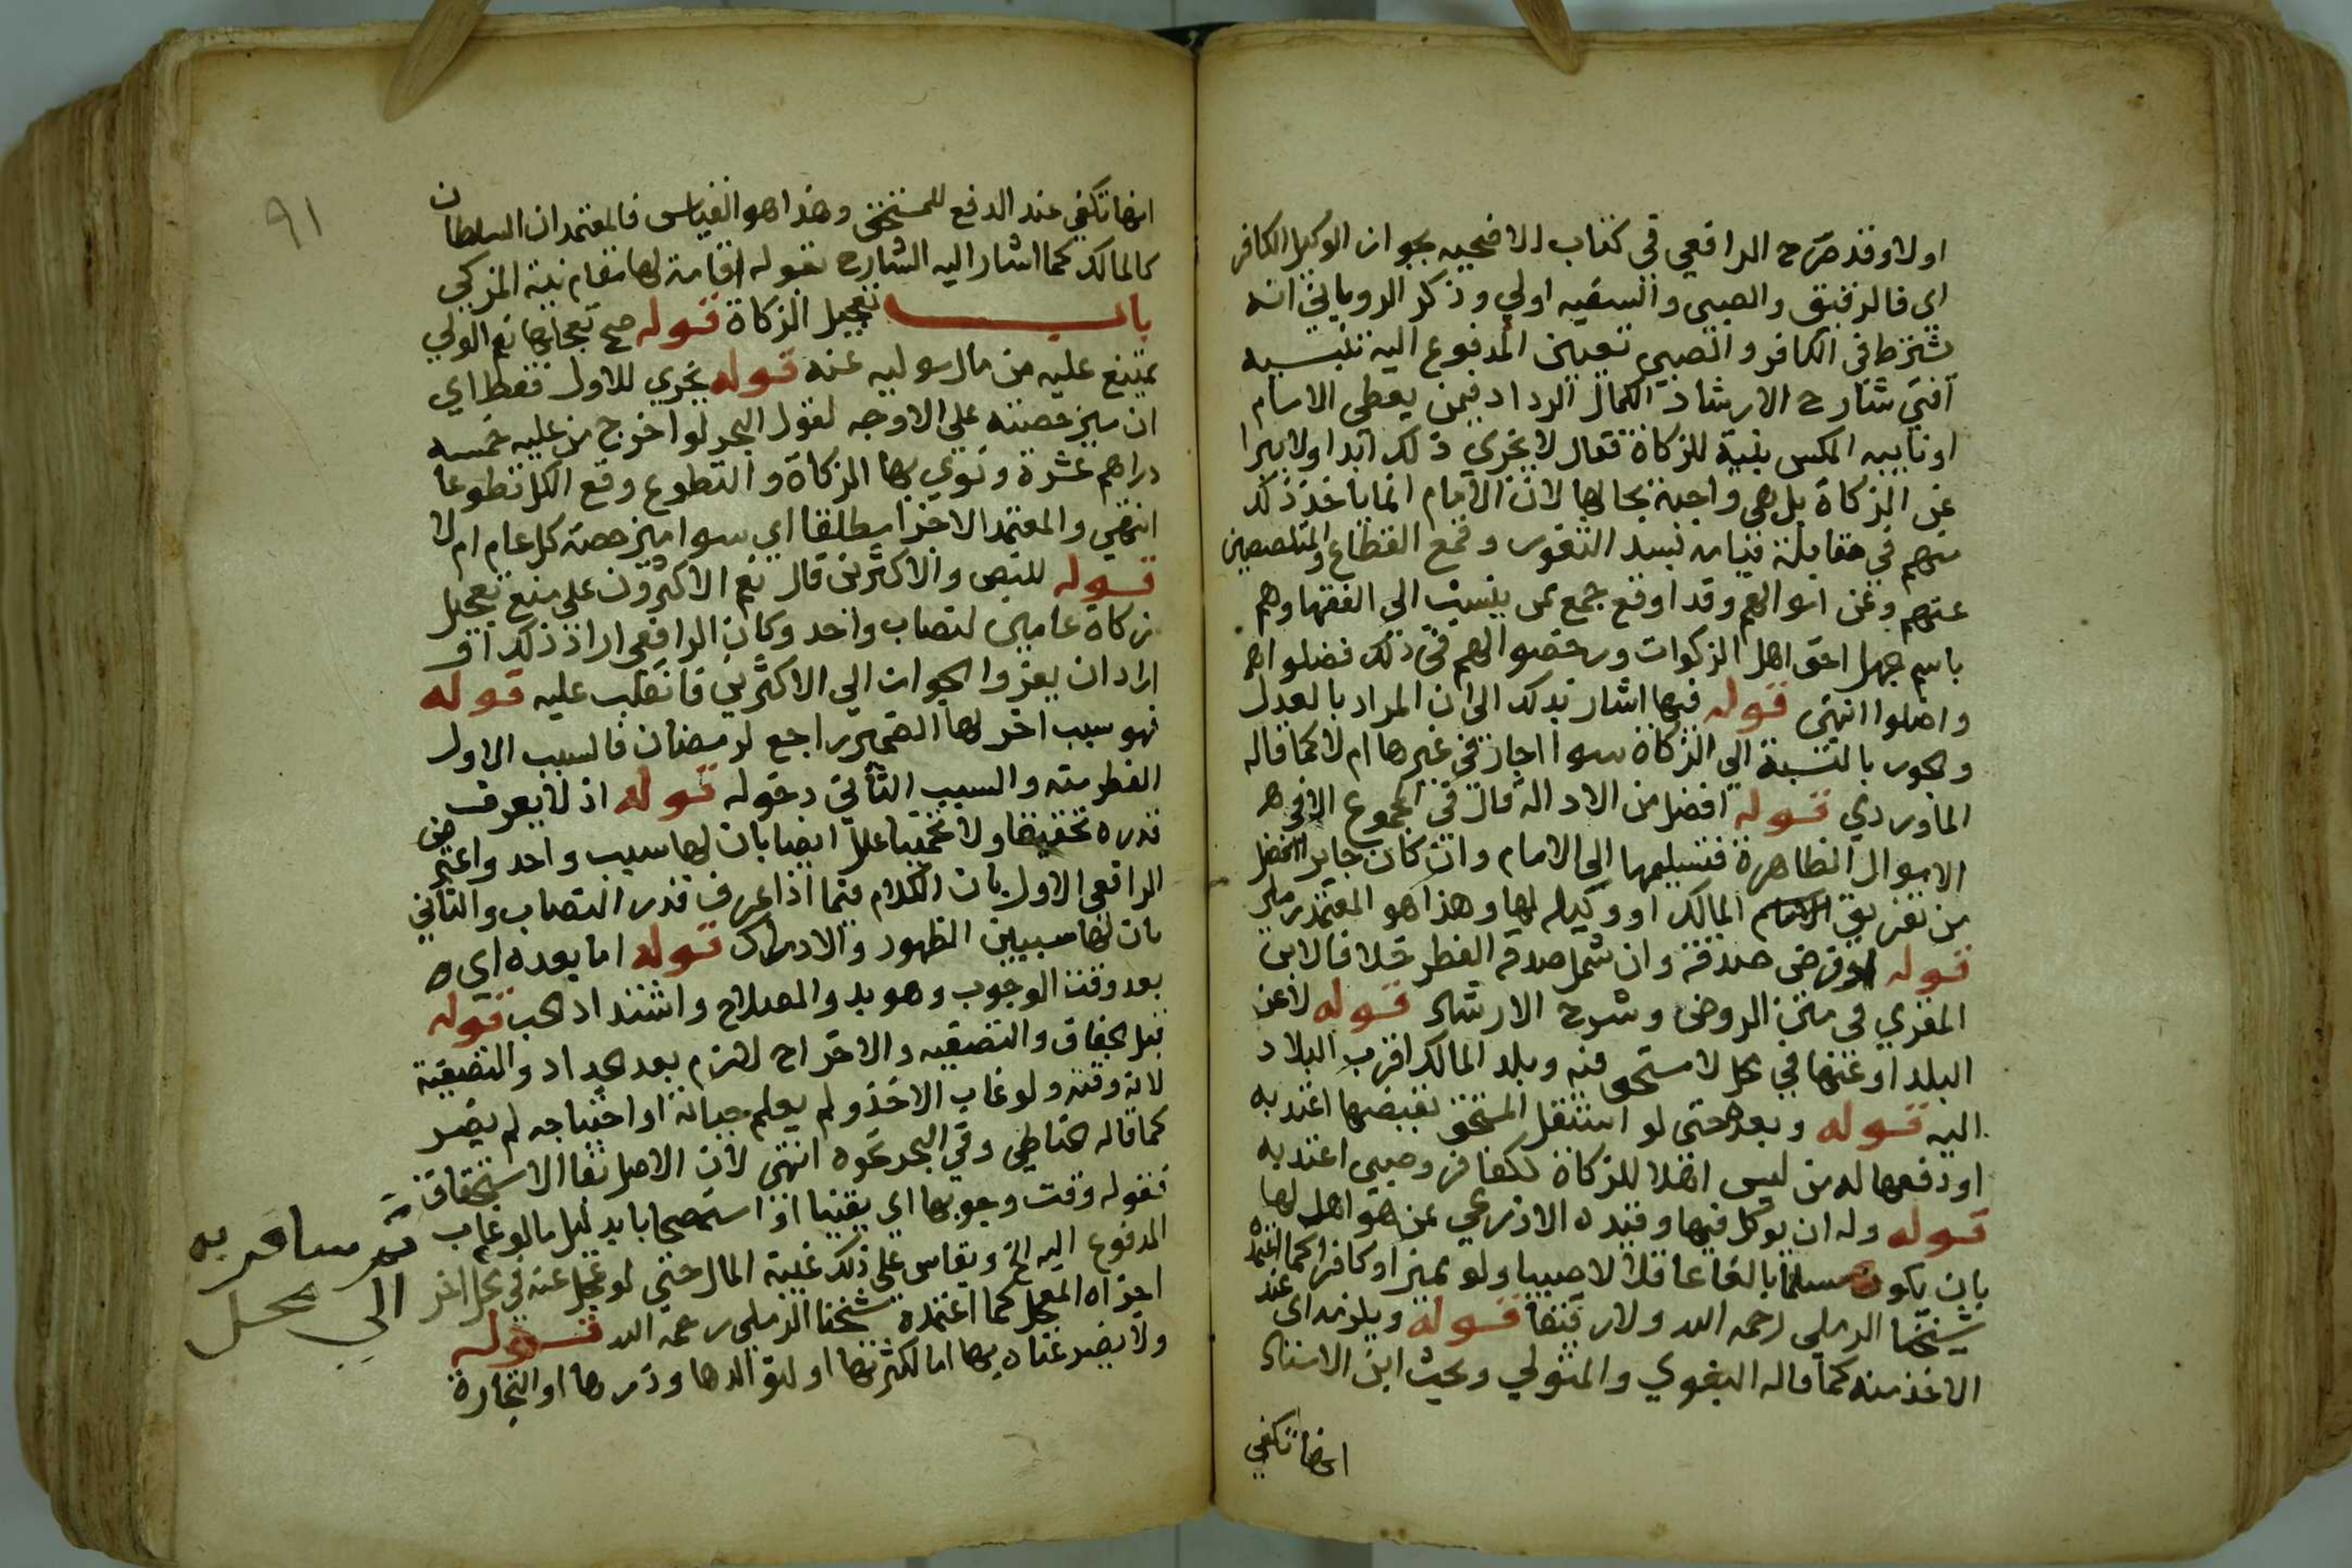 اولا وقد صرح الرافعي في كتاب الاضحيه بجواز الوكيل الكافر
اي فالرقيق والصبي والسفيه اولي وذكر الروياني انه
يشترط في الكافر والصبي تعيين المدفوع اليه تنبيه
افتي شارح الارشاد الكمال الرداد فيمن يعطي الامام
او نايبه المكس بنية الزكاة فقال لا يجزي ذلك ابدا ولا يبرا
عن الزكاة بل هي واجبة بحالها لان الامام انما ياخذ ذلك
منهم في مقابلة قيامه بسد الثغور وقمع القطاع والمتلصصين
عنهم وعن اموالهم وقد اوقع جمع ممن ينسب الي الفقها وهم
باسم الجهل احق اهل الزكوات ورخصوا لهم في ذلك فضلوا
واضلوا انتهي قوله فيها اشار بذلك الي ان المراد بالعدل
والجور بالنسبة الي الزكاة سوا اجار في غيرها ام لا كما قاله
الماوردي قوله افضل من الادالة قال في المجموع الا في
الاموال الظاهرة فتسليمها الي الامام وان كان جايرا افضل
من تفريق المالك او وكيله لها وهذا هو المعتمد رملي
قوله او فرض صدقة وان شمل صدقه الفطر خلافا لابن
المقري في متن الروض وشرح الارشاد قوله لا عن
البلد او عنها في محل لا مستحق فيه وبلد المالك اقرب البلاد
اليه قوله وبعده حتي لو استقل المستحق بقبضها اعتد به
او دفعها له من ليس اهلا للزكاة ككافر وصبي اعتد به
قوله وله ان يوكل فيها وقيده الاذرعي بمن هو اهل لها
بان يكون مسلما بالغا عاقلا لا صبيا ولو مميزا او كافرا كما اعتمده
شيخنا الرملي رحمه الله ولا رقيقا قوله ويلزمه اي عند
الاخذ منه كما قاله البغوي والمتولي وبحث ابن الاستاذ
انها تكفي
٩١
انها تكفي عند الدفع للمستحق وهذا هو القياس فالمعتمد ان السلطان
كالمالك كما اشار اليه الشارح بقوله اقامة لها مقام نية المزكي
باب تعجيل الزكاة قوله صح تعجيلها نعم الولي
يمتنع عليه من مال موليه عنه قوله يجزي للاول فقط اي
ان ميز حصته علي الاوجه لقول البحر لو اخرج من عليه خمسه
دراهم عشرة ونوي بها الزكاة والتطوع وقع الكل تطوعا
انتهي والمعتمد الاجزا مطلقا اي سوا ميز حصة كل عام ام لا
قوله للنص والاكثرين قال نعم الاكثرون علي منع تعجيل
زكاة عامين لنصاب واحد وكان الرافعي اراد ذلك او
اراد ان يعزو الجواز الي الاكثرين فانقلب عليه قوله
فهو سبب اخر لها الضمير راجع لرمضان فالسبب الاول
الفطر منه والسبب الثاني دخوله قوله اذ لا يعرف
قدره تحقيقا ولا تخمينا علل ايضا بان لها سبب واحد واعترض
الرافعي الاول بان الكلام فيما اذا عرف قدر النصاب والثاني
بان لها سببين الظهور والادراك قوله اما بعده اي
بعد وقت الوجوب وهو بدو الصلاح واشتداد الحب قوله
قبل الجفاف والتصفيه والاخراج لازم بعد الجداد والتصفية
لانه وقته ولو غاب الاخذ ولم يعلم حياته او احتياجه لم يضر
كما قاله الحناطي وفي البحر نحوه انتهي لان الاصل بقا الاستحقاق
فقوله وقت وجوبها اي يقينا او استصحابا بدليل ما لو غاب
المدفوع اليه الخ ويقاس علي ذلك غيبة المال حتي لو عجل عنه في محل اخر
اجزاه المعجل كما اعتمده شيخنا الرملي رحمه الله قوله
ولا يضر غناه بها اما لكثرتها او لتوالدها ودرها او التجارة
ثم سافر به
الي محل